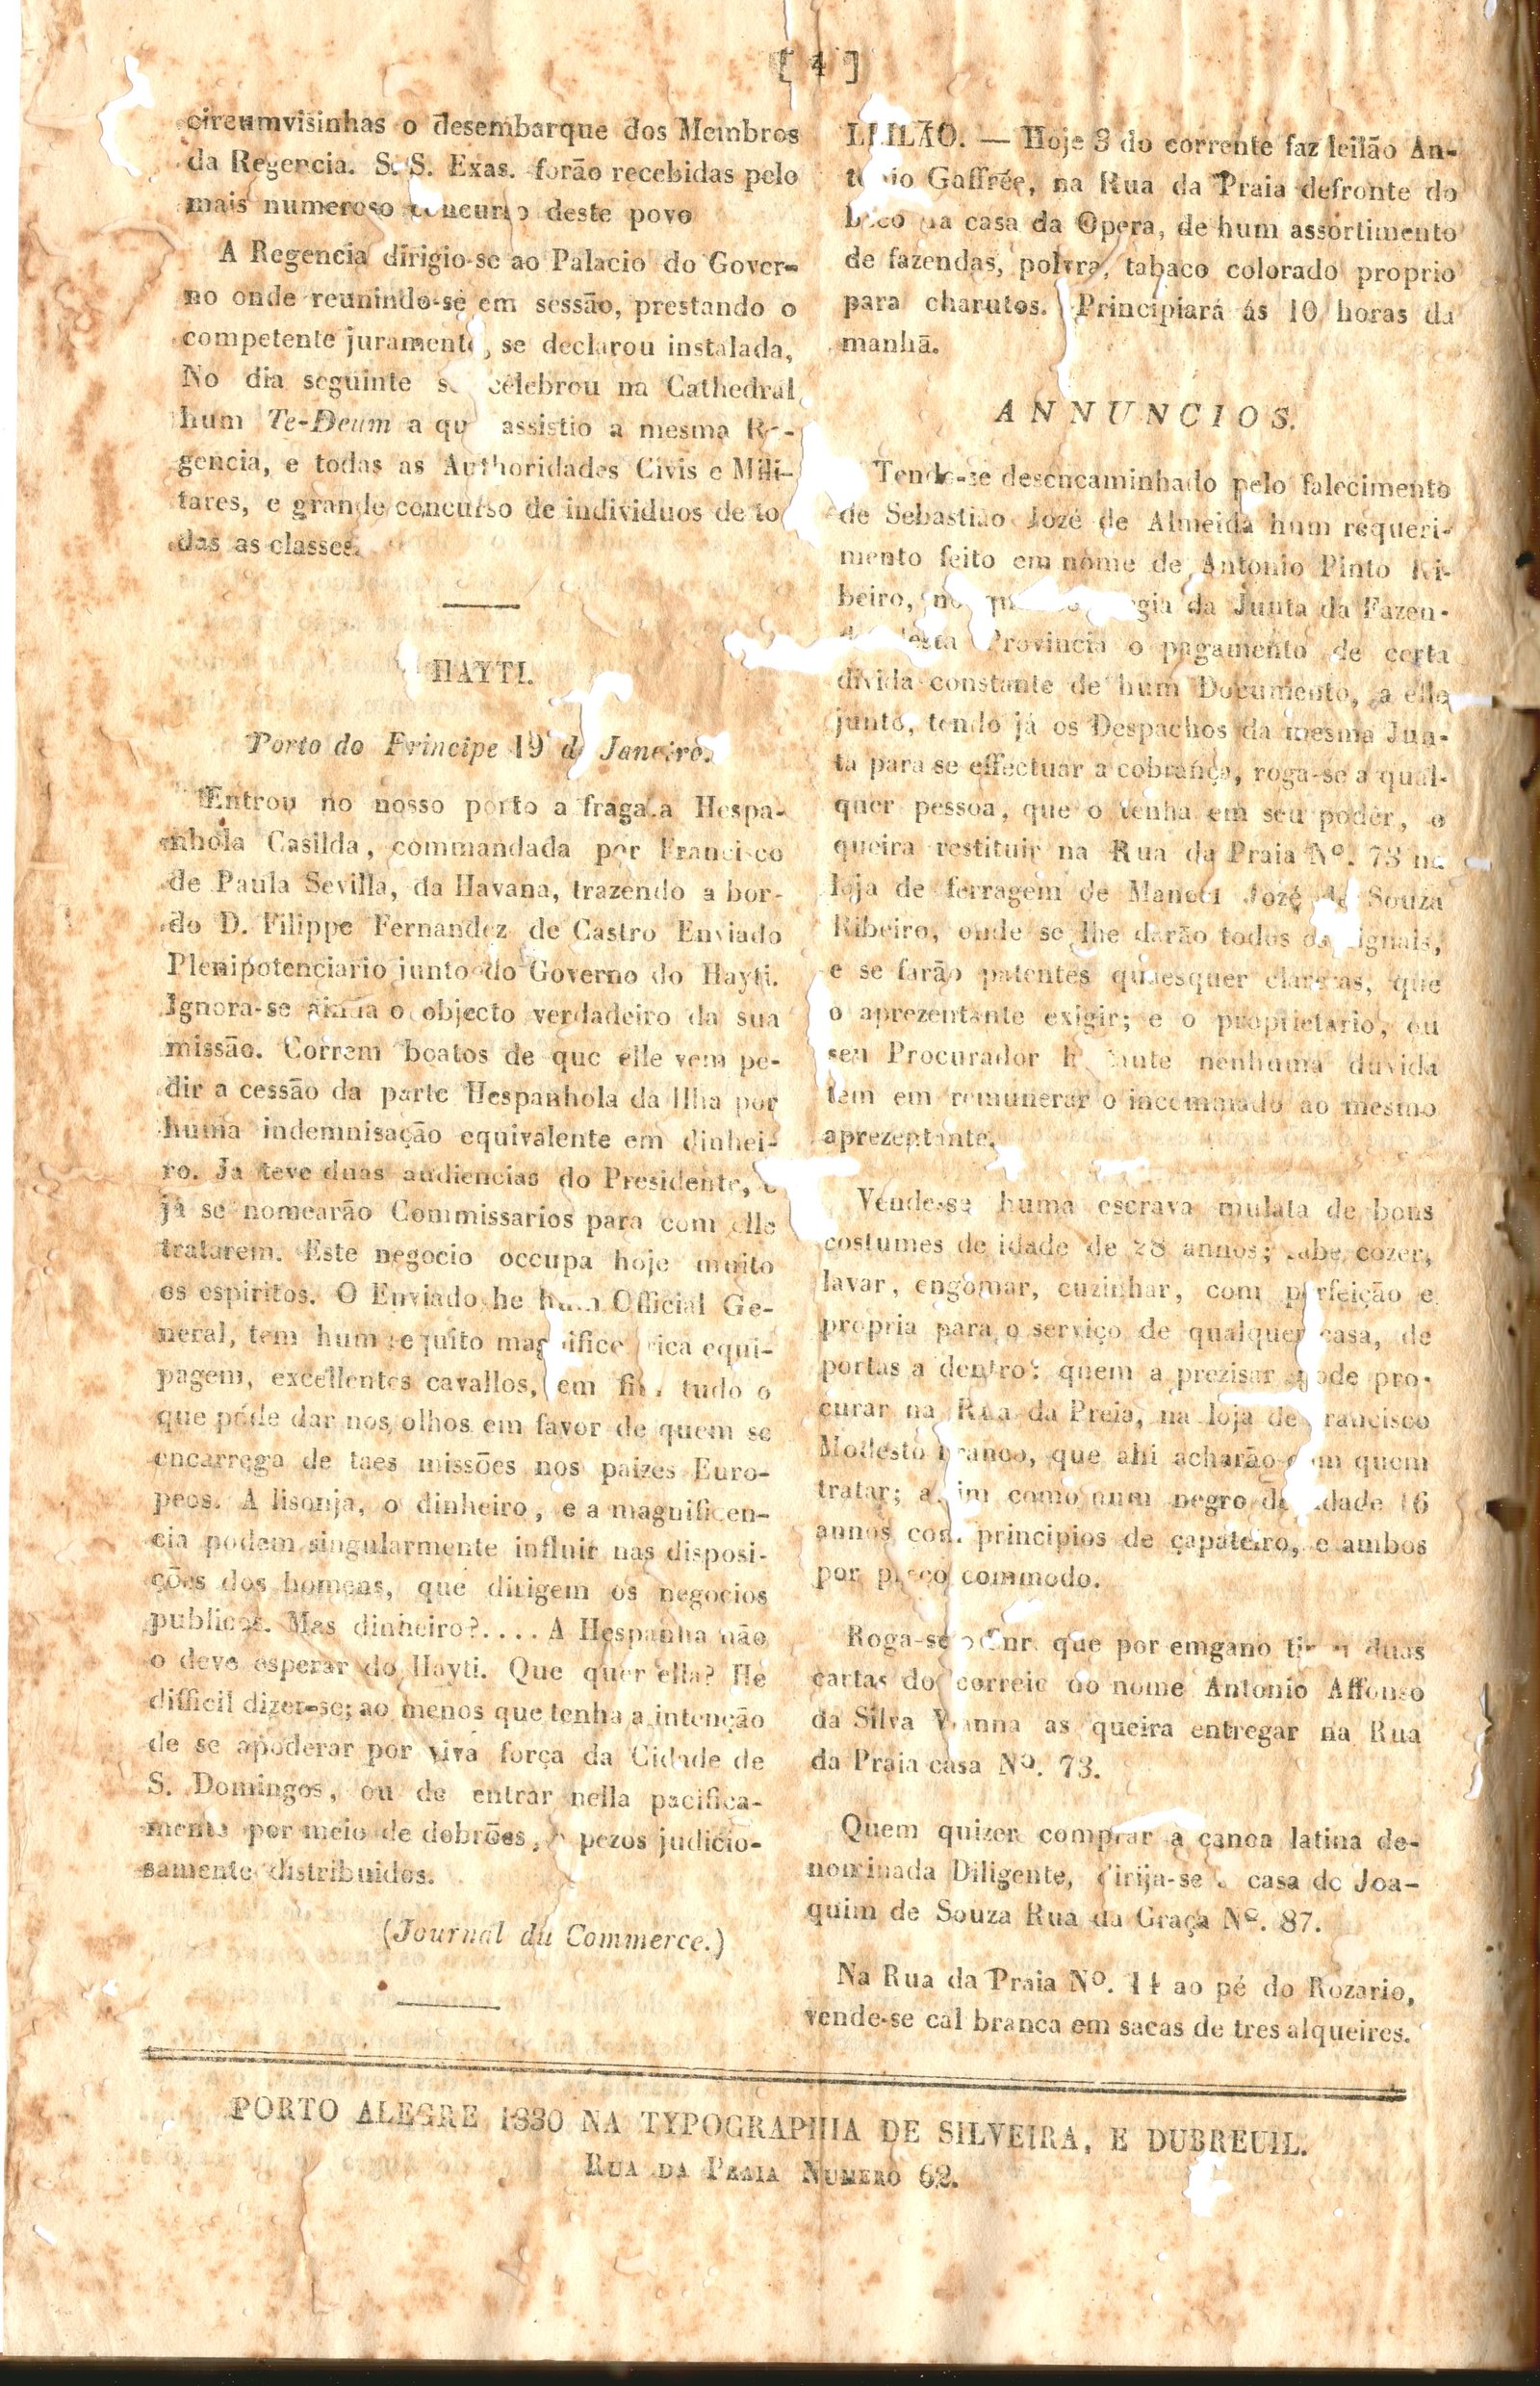 [ 4 ]
circumvisinhas o desembarque dos Membros
da Regencia. S. S. Exas. forão recebidas pelo
mais numeroso deste povo
A Regencia dirigio-se ao Palacio do Gover-
no onde reunindo-se em sessão, prestando o
competente se declarou instalada,
No dia seguinte celebrou na Cathedral
hum Te-Deum a assistio a mesma Re-
gencia, e todas as Authoridades Civis e Mili-
tares, e grande concurso de individuos de to
das as classes.
HAYTI.
Porto do Principe 19 de Janeiro.
Entrou no nosso porto a fragata Hespa-
nhola Casilda, commandada por Francisco
de Paula Sevilla, da Havana, trazendo a bor-
do D. Filippe Fernandez de Castro Enviado
Plenipotenciario junto do Governo do Hayti.
Ignora-se ainda o objecto verdadeiro da sua
missão. Correm boatos de que elle vem pe-
dir a cessão da parte Hespanhola da Ilha por
huma indemnisação equivalente em dinhei-
ro. Ja teve duas audiencias do Presidente, e
já se nomearão Commissarios para com elle
tratarem. Este negocio occupa hoje muito
os espiritos. O Enviado he hum Official Ge-
neral, tem hum sequito rica equi-
pagem, excellentes cavallos, em fim tudo o
que póde dar nos olhos em favor de quem se
encarrega de taes missões nos paizes Euro-
peos. A lisonja, o dinheiro, e a magnificen-
cia podem singularmente influir nas disposi-
ções dos homens, que dirigem os negocios
publicos. Mas dinheiro?.... A Hespanha não
o deve esperar do Hayti. Que quer ella? He
difficil dizer-se; ao menos que tenha a intenção
de se apoderar por viva força da Cidade de
S. Domingos, ou de entrar nella pacifica-
mente por meio de dobrões, pezos judicio-
samente distribuidos.
(Journal du Commerce.)
LEILÃO. — Hoje 3 do corrente faz leilão An-
tonio Gaffrée, na Rua da Praia defronte do
beco da casa da Opera, de hum assortimento
de fazendas, polvra, tabaco colorado proprio
para charutos. Principiará ás 10 horas da
manhã.
ANNUNCIOS.
Tendo-se desencaminhado pelo falecimento
de Sebastião Jozé de Almeida hum requeri-
mento feito em nome de Antonio Pinto Ri-
beiro, da Junta da Fazen-
Provincia o pagamento de certa
divida constante de hum Documento, a elle
junto, tendo já os Despachos da mesma Jun-
ta para se effectuar a cobrança, roga-se a qual-
quer pessoa, que o tenha em seu poder, o
queira restituir na Rua da Praia Nº. 73 na
loja de ferragem de Manoel Jozé de Souza
Ribeiro, onde se lhe darão todos os signais,
e se farão patentes quaesquer clarezas, que
o aprezentante exigir; e o proprietario, ou
seu Procurador nenhuma duvida
tem em remunerar o incommodo ao mesmo
aprezentante.
Vende-se huma escrava mulata de bons
costumes de idade de 28 annos; sabe cozer,
lavar, engomar, cuzinhar, com perfeição e
propria para o serviço de qualquer casa, de
portas a dentro: quem a prezisar pode pro-
curar na Rua da Preia, na loja de Francisco
Modesto Franco, que ahi acharão com quem
tratar; assim como hum negro de idade 16
annos com principios de çapateiro, e ambos
por preço commodo.
Roga-se o Snr. que por emgano tirou duas
cartas do correio do nome Antonio Affonso
da Silva Vianna as queira entregar na Rua
da Praia casa Nº. 73.
Quem quizer comprar a canoa latina de-
nominada Diligente, dirija-se a casa de Joa-
quim de Souza Rua da Graça Nº. 87.
Na Rua da Praia Nº. 14 ao pé do Rozario,
vende-se cal branca em sacas de tres alqueires.
PORTO ALEGRE 1830 NA TYPOGRAPHIA DE SILVEIRA, E DUBREUIL.
RUA DA PRAIA NUMERO 62.